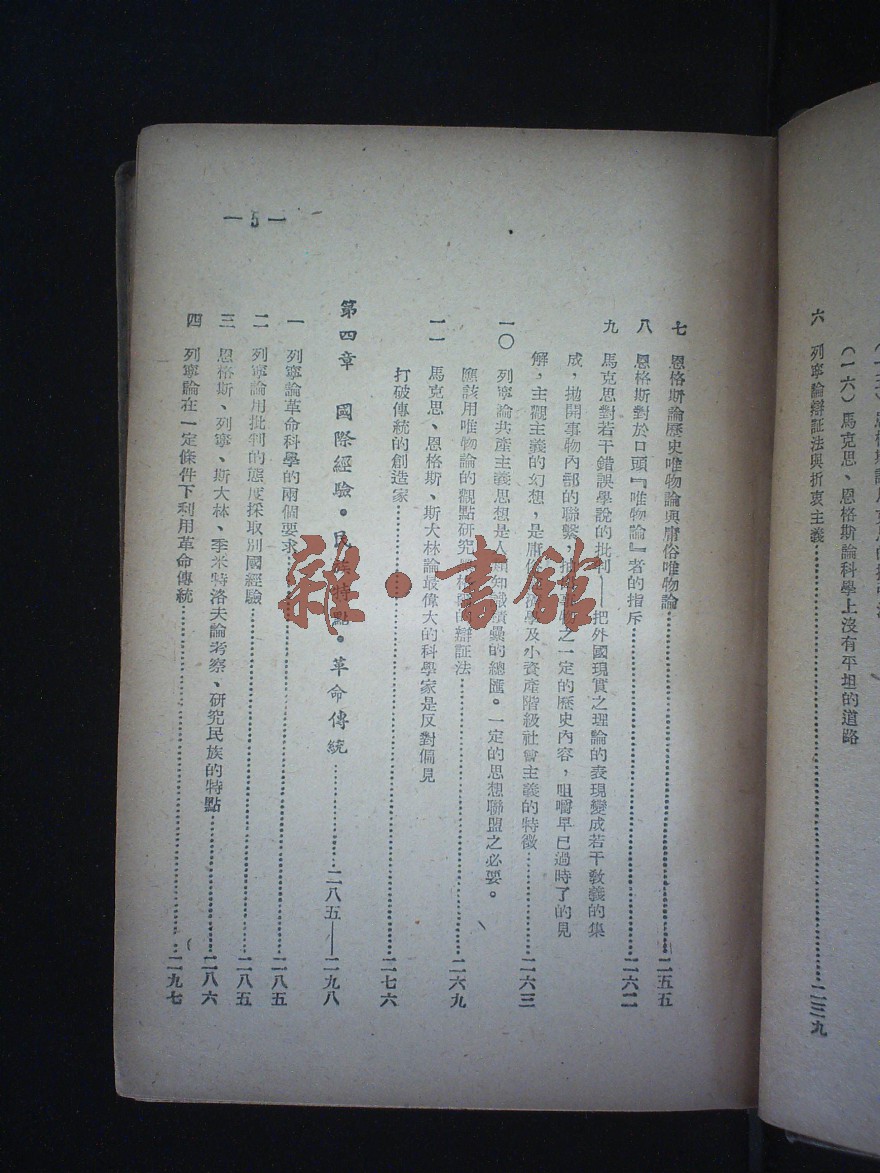 (一六)馬克思、恩格斯論科學上沒有平坦的道路
六 列寧論辯証法與折衷主義……二三九
七 恩格斯論歷史唯物論與庸俗唯物論……二五五
八 恩格斯對於口頭『唯物論』者的指斥……二六二
九 馬克思對若干錯誤學說的批判——把外國現實之理論的表現變成若干教義的集
成,拋開事物內部的聯繫,之一定的歷史內容,咀嚼早已過時了的見
解,主觀主義的幻想,是庸學及小資產階級社會主義的特徵……二六三
一〇 列寧論共產主義思想是人類知識積纍的總匯。一定的思想聯盟之必要。
應該用唯物論的觀點研究的辯証法……二六九
一一 馬克思、恩格斯、斯大林論最偉大的科學家是反對偏見
打破傳統的創造家……二七六
第四章 國際經驗。民族特點。革命傳統……二八五——二九八
一 列寧論革命科學的兩個要求……二八五
二 列寧論用批判的態度採取別國經驗……二八五
三 恩格斯、列寧、斯大林、季米特洛夫論考察、研究民族的特點……二八六
四 列寧論在一定條件下利用革命傳統……二九七
— 5 —
雜·書館